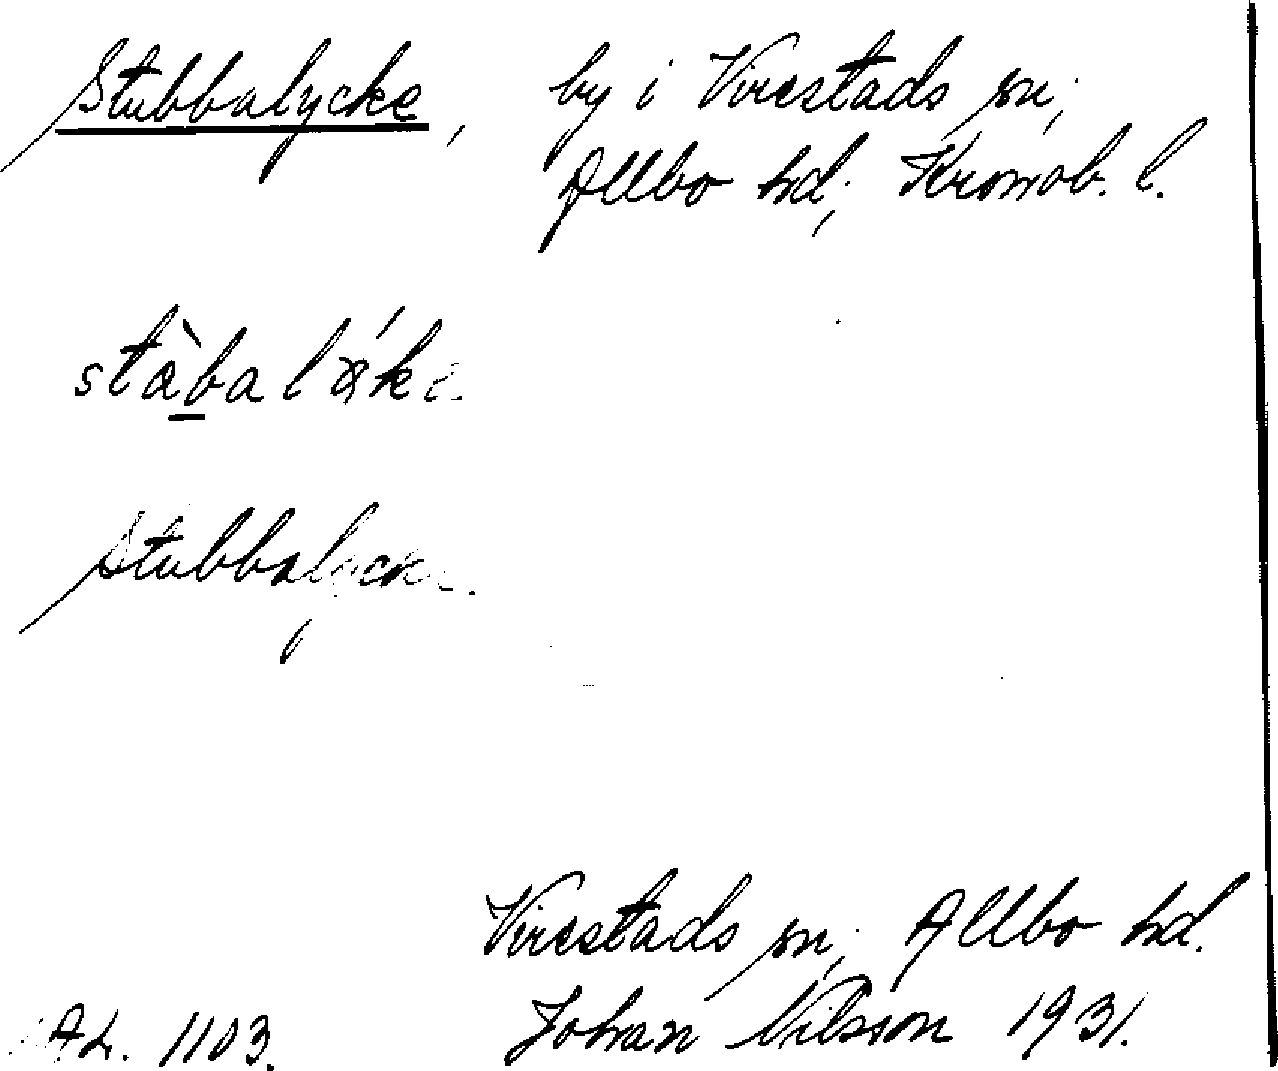 Stubbalycke, by i Virestads sn,
Allbo hd, Kronob. l.
Stubbalycke.
Virestads sn, Allbo hd.
AL. 1103. Johan Nilsson 1931.